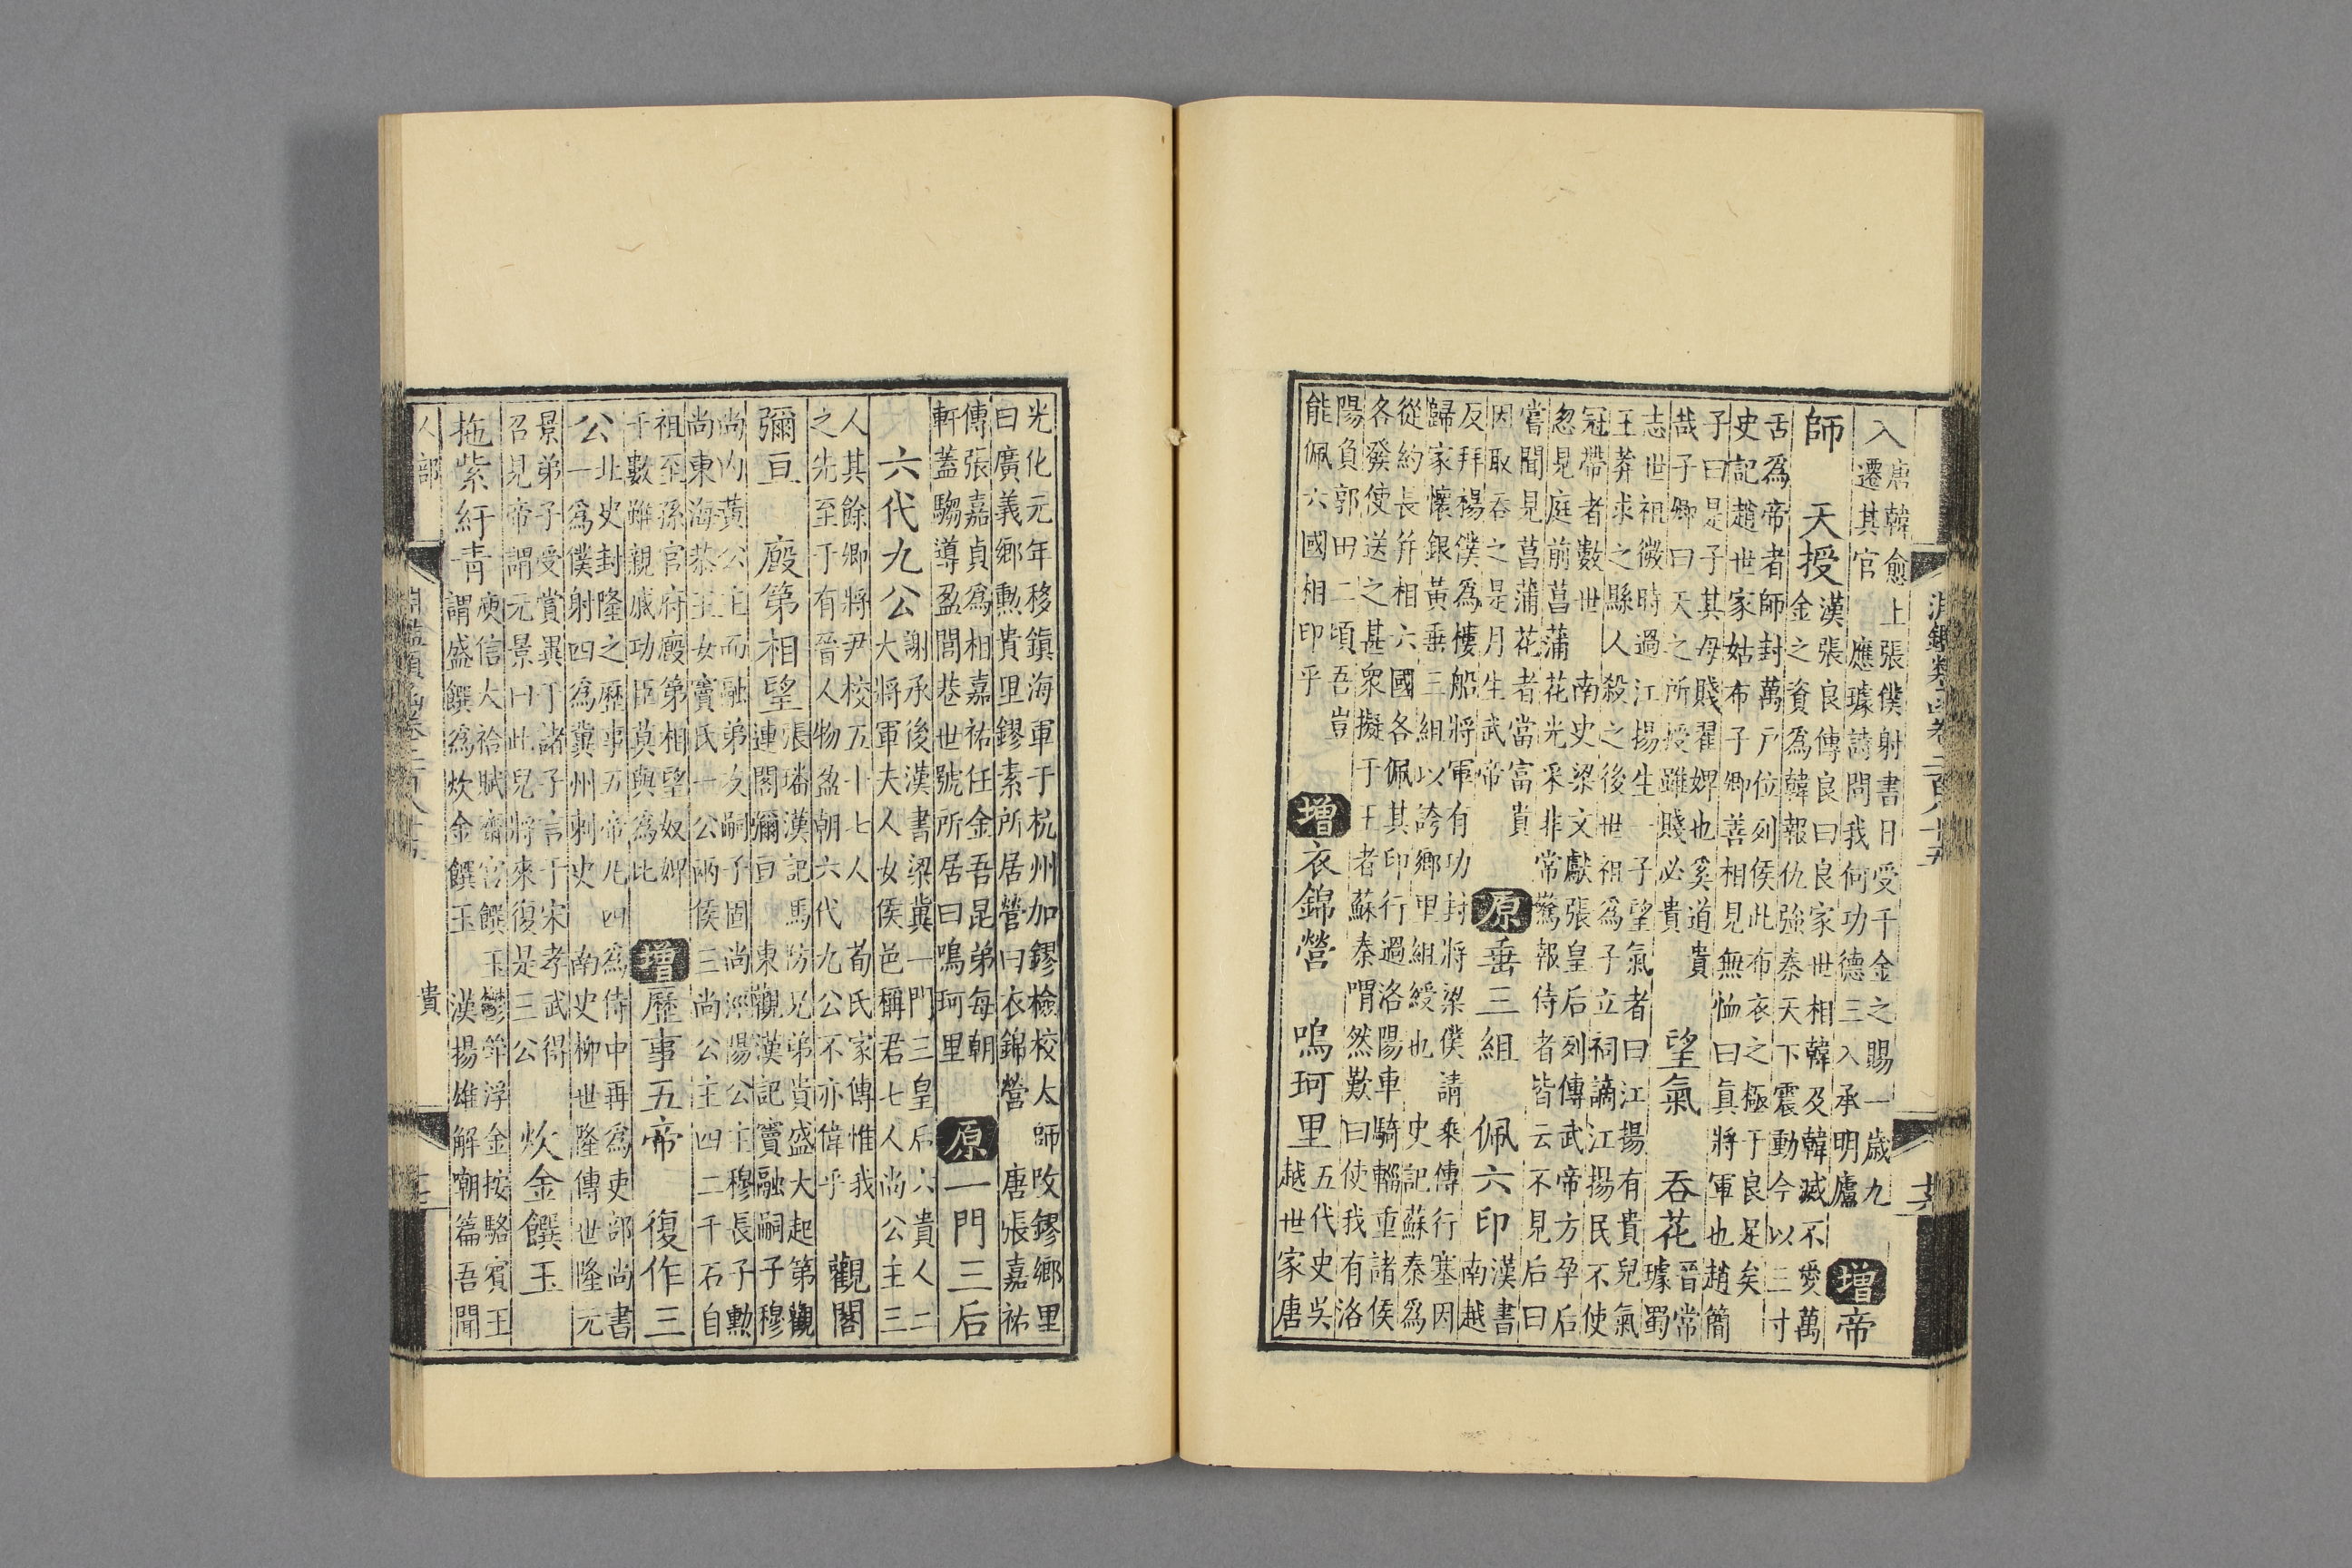 淵鑑類函卷三百八十五
入 唐韓愈上張僕射書日受千金之賜一歲九
遷其官 應璩詩問我何功德三入承明廬 增 帝
師 天授 漢張良傳良曰良家世相韓及韓滅不愛萬
金之資為韓報仇強秦天下震動今以三寸
舌為帝者師封萬戶位列侯此布衣之極于良足矣
史記趙世家姑布子卿善相見無恤曰眞將軍也趙簡
子曰是子其母賤翟婢也奚道貴
哉子卿曰天之所授雖賤必貴 望氣 吞花 晉常
璩蜀
志世祖微時過江揚生一子望氣者曰江揚有貴兒氣
王莽求之縣人殺之後世祖為子立祠謫江揚民不使
冠帶者數世 南史梁文獻張皇后列傳武帝方孕后
忽見庭前菖蒲花光采非常驚報侍者皆云不見后曰
嘗聞見菖蒲花者當富貴
因取吞之是月生武帝 原 垂三組 佩六印 漢書
南越
反拜楊僕為樓船將軍有功封將梁僕請乘傳行塞因
歸家懷銀黃垂三組以誇鄉里組綬也 史記蘇秦為
從約長并相六國各佩其印行過洛陽車騎輜重諸侯
各發使送之甚衆擬于王者蘇秦喟然歎曰使我有洛
陽負郭田二頃吾豈
能佩六國相印乎 增 衣錦營 鳴珂里 五代史吳
越世家唐
光化元年移鎮海軍于杭州加鏐檢校太師改鏐鄉里
曰廣義鄉勳貴里鏐素所居營曰衣錦營 唐張嘉祐
傳張嘉貞為相嘉祐任金吾昆弟每朝
軒蓋騶導盈閭巷世號所居曰鳴珂里 原 一門三后
六代九公 謝承後漢書梁冀一門三皇后六貴人二
大將軍夫人女侯邑稱君七人尚公主三
人其餘卿將尹校五十七人 荀氏家傳惟我
之先至于有晉人物盈朝六代九公不亦偉乎 觀閣
彌亘 廄第相望 張璠漢記馬防兄弟貴盛大起第觀
連閣彌亘 東觀漢記竇融嗣子穆
尚內黃公主而融弟友嗣子固尚涅陽公主穆長子勳
尚東海恭王女竇氏一公兩侯三尚公主四二千石自
祖至孫官府廄第相望奴婢
千數雖親戚功臣莫與為比 增 歷事五帝 復作三
公 北史封隆之歷事五帝凡四為侍中再為吏部尚書
一為僕射四為冀州刺史 南史柳世隆傳世隆元
景弟子受賞異于諸子言于宋孝武得
召見帝謂元景曰此兒將來復是三公 炊金饌玉
拖紫紆青 庾信大祫賦齋宮饌玉鬱 浮金按駱賓王
謂盛饌為炊金饌玉 漢揚雄解嘲篇吾聞
人部 貴